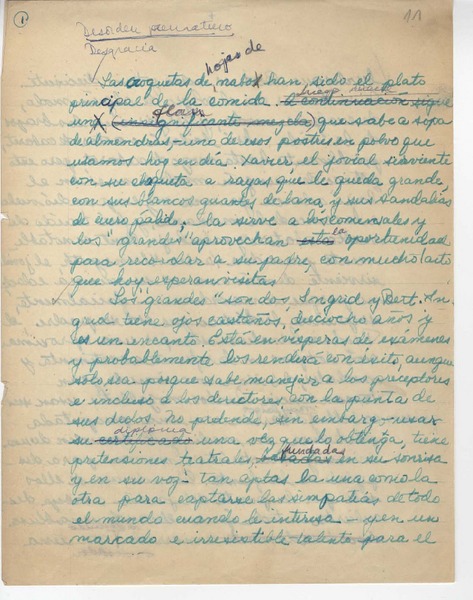 1 11
Desórden prematuro
Desgracia
hojas de
Las croquetas de nabos han sido el plato
luego
principal de la comida. A continuación sigue
flan
un (insignificante mezcla) que sabe a sopa
de almendras - uno de esos postres en polvo que
usamos hoy en día. Xavier, el jovial sirviente
con su chaqueta a rayas que le queda grande,
con sus blancos guantes de lana, y sus sandalias
de cuero pálido, la sirve a los comensales y
la
los "grandes" aprovechan esta oportunidad
para recordar a su padre, con mucho tacto
que hoy esperan visitas.
Los "grandes" son dos, Ingrid y Bert. In-
grid tiene ojos castaños, dieciocho años y
es un encanto. Está en vísperas de examenes
y probablemente los rendirá con éxito, aunque
sólo sea porque sabe manejar a los preceptores
e incluso a los directores con la punta de
sus dedos. No pretende, sin embargo - usar
diploma
su certificado una vez que lo obtenga, tiene
fundadas
pretensiones teatrales, basadas en su sonrisa
y en su voz: tan aptas la una como la
otra para captarse las simpatías de todo
el mundo cuando le interesa - y en un
marcado e irresistible talento para el